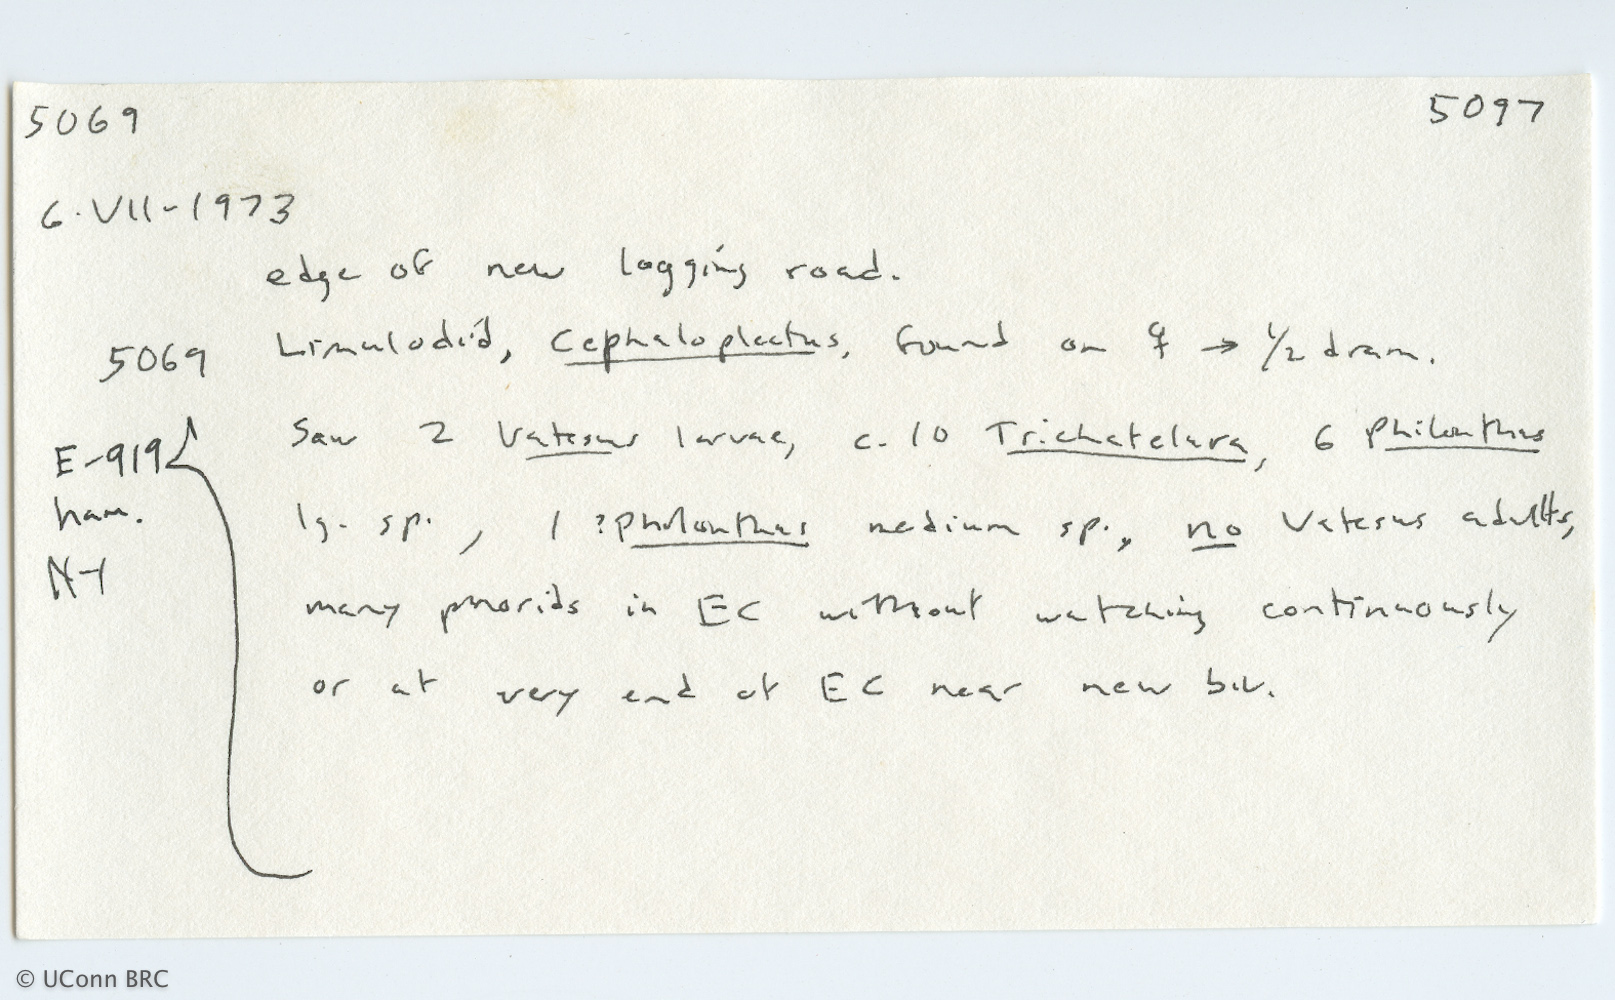 5069 5097
6-VII-1973
edge of new logging road.
5069 Limulodid, Cephaloplectus, found on ♀ → 1/2 dram.
E-919 Saw 2 Vatesus larvae, c. 10 Trichatelura, 6 Philonthus
ham. lg. sp., 1 ?Philonthus medium sp., no Vatesus adults,
many phorids in EC without watching continuously
or at very end of EC near new biv.
© UConn BRC